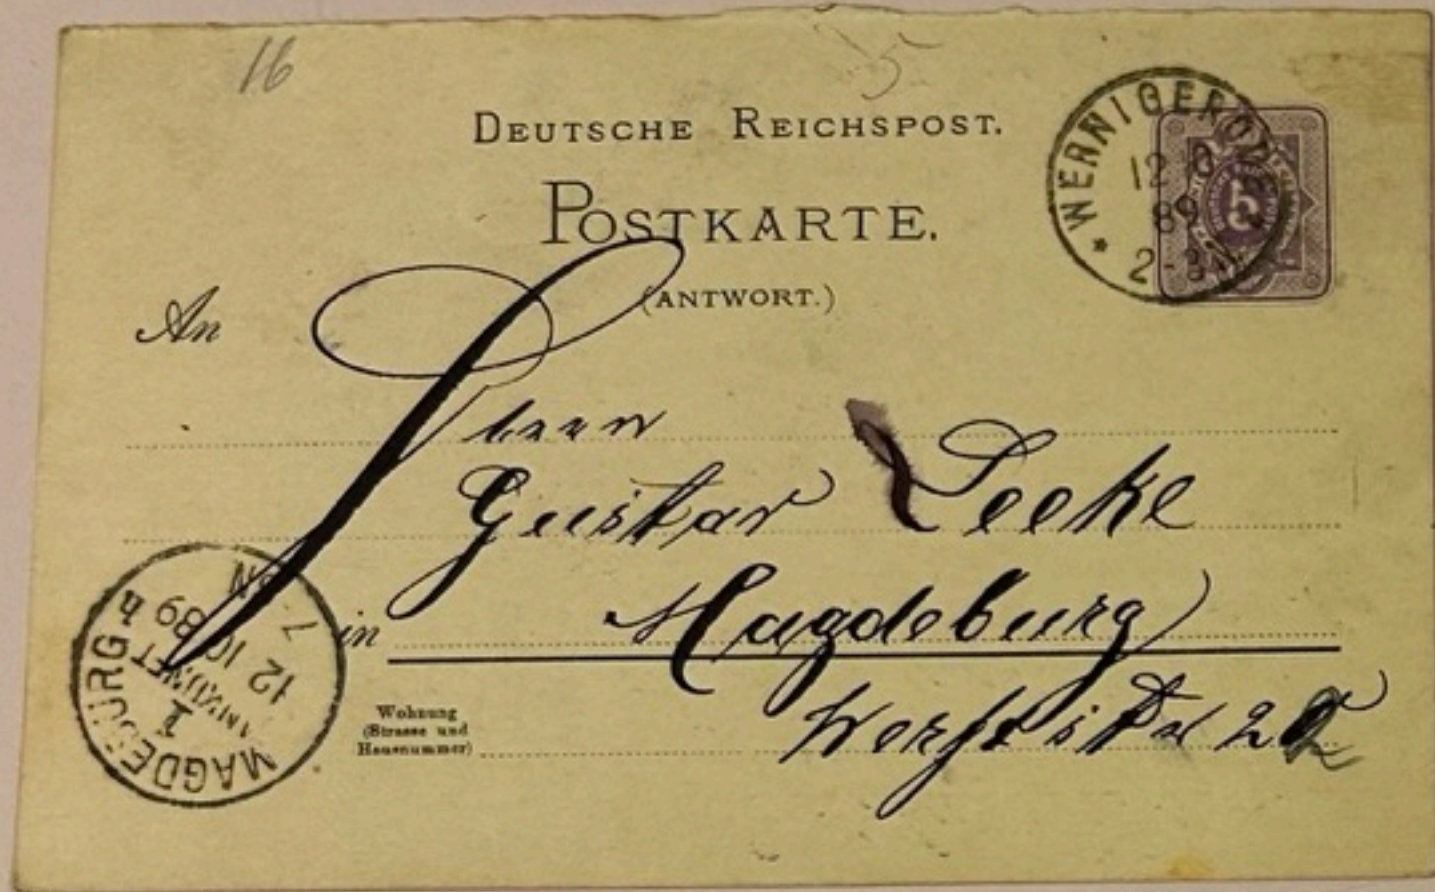 16
5
DEUTSCHE REICHSPOST.
POSTKARTE.
(ANTWORT.)
WERNIGERODE
12 10
89
2-3N
5
An
Herrn
Gustav Leeke
in Magdeburg
Werftstr 22
Wohnung
(Strasse und
Hausnummer)
MAGDEBURG
1
ANKUNFT
12 10 89
7 N